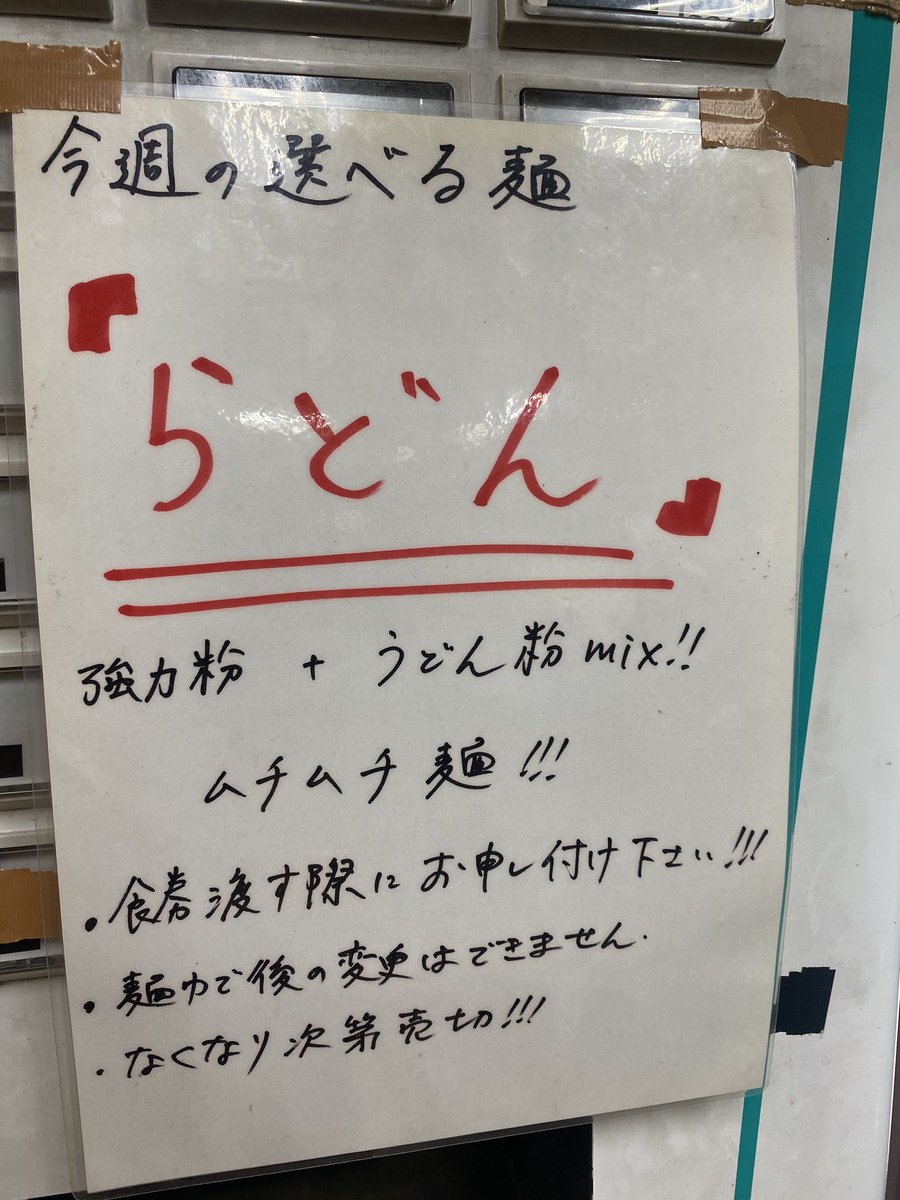 今週の選べる麺
『らどん』
強力粉 + うどん粉mix!!
ムチムチ麺!!!
・食券渡す際にお申し付け下さい!!!
・麺ゆで後の変更はできません.
・なくなり次第売切!!!